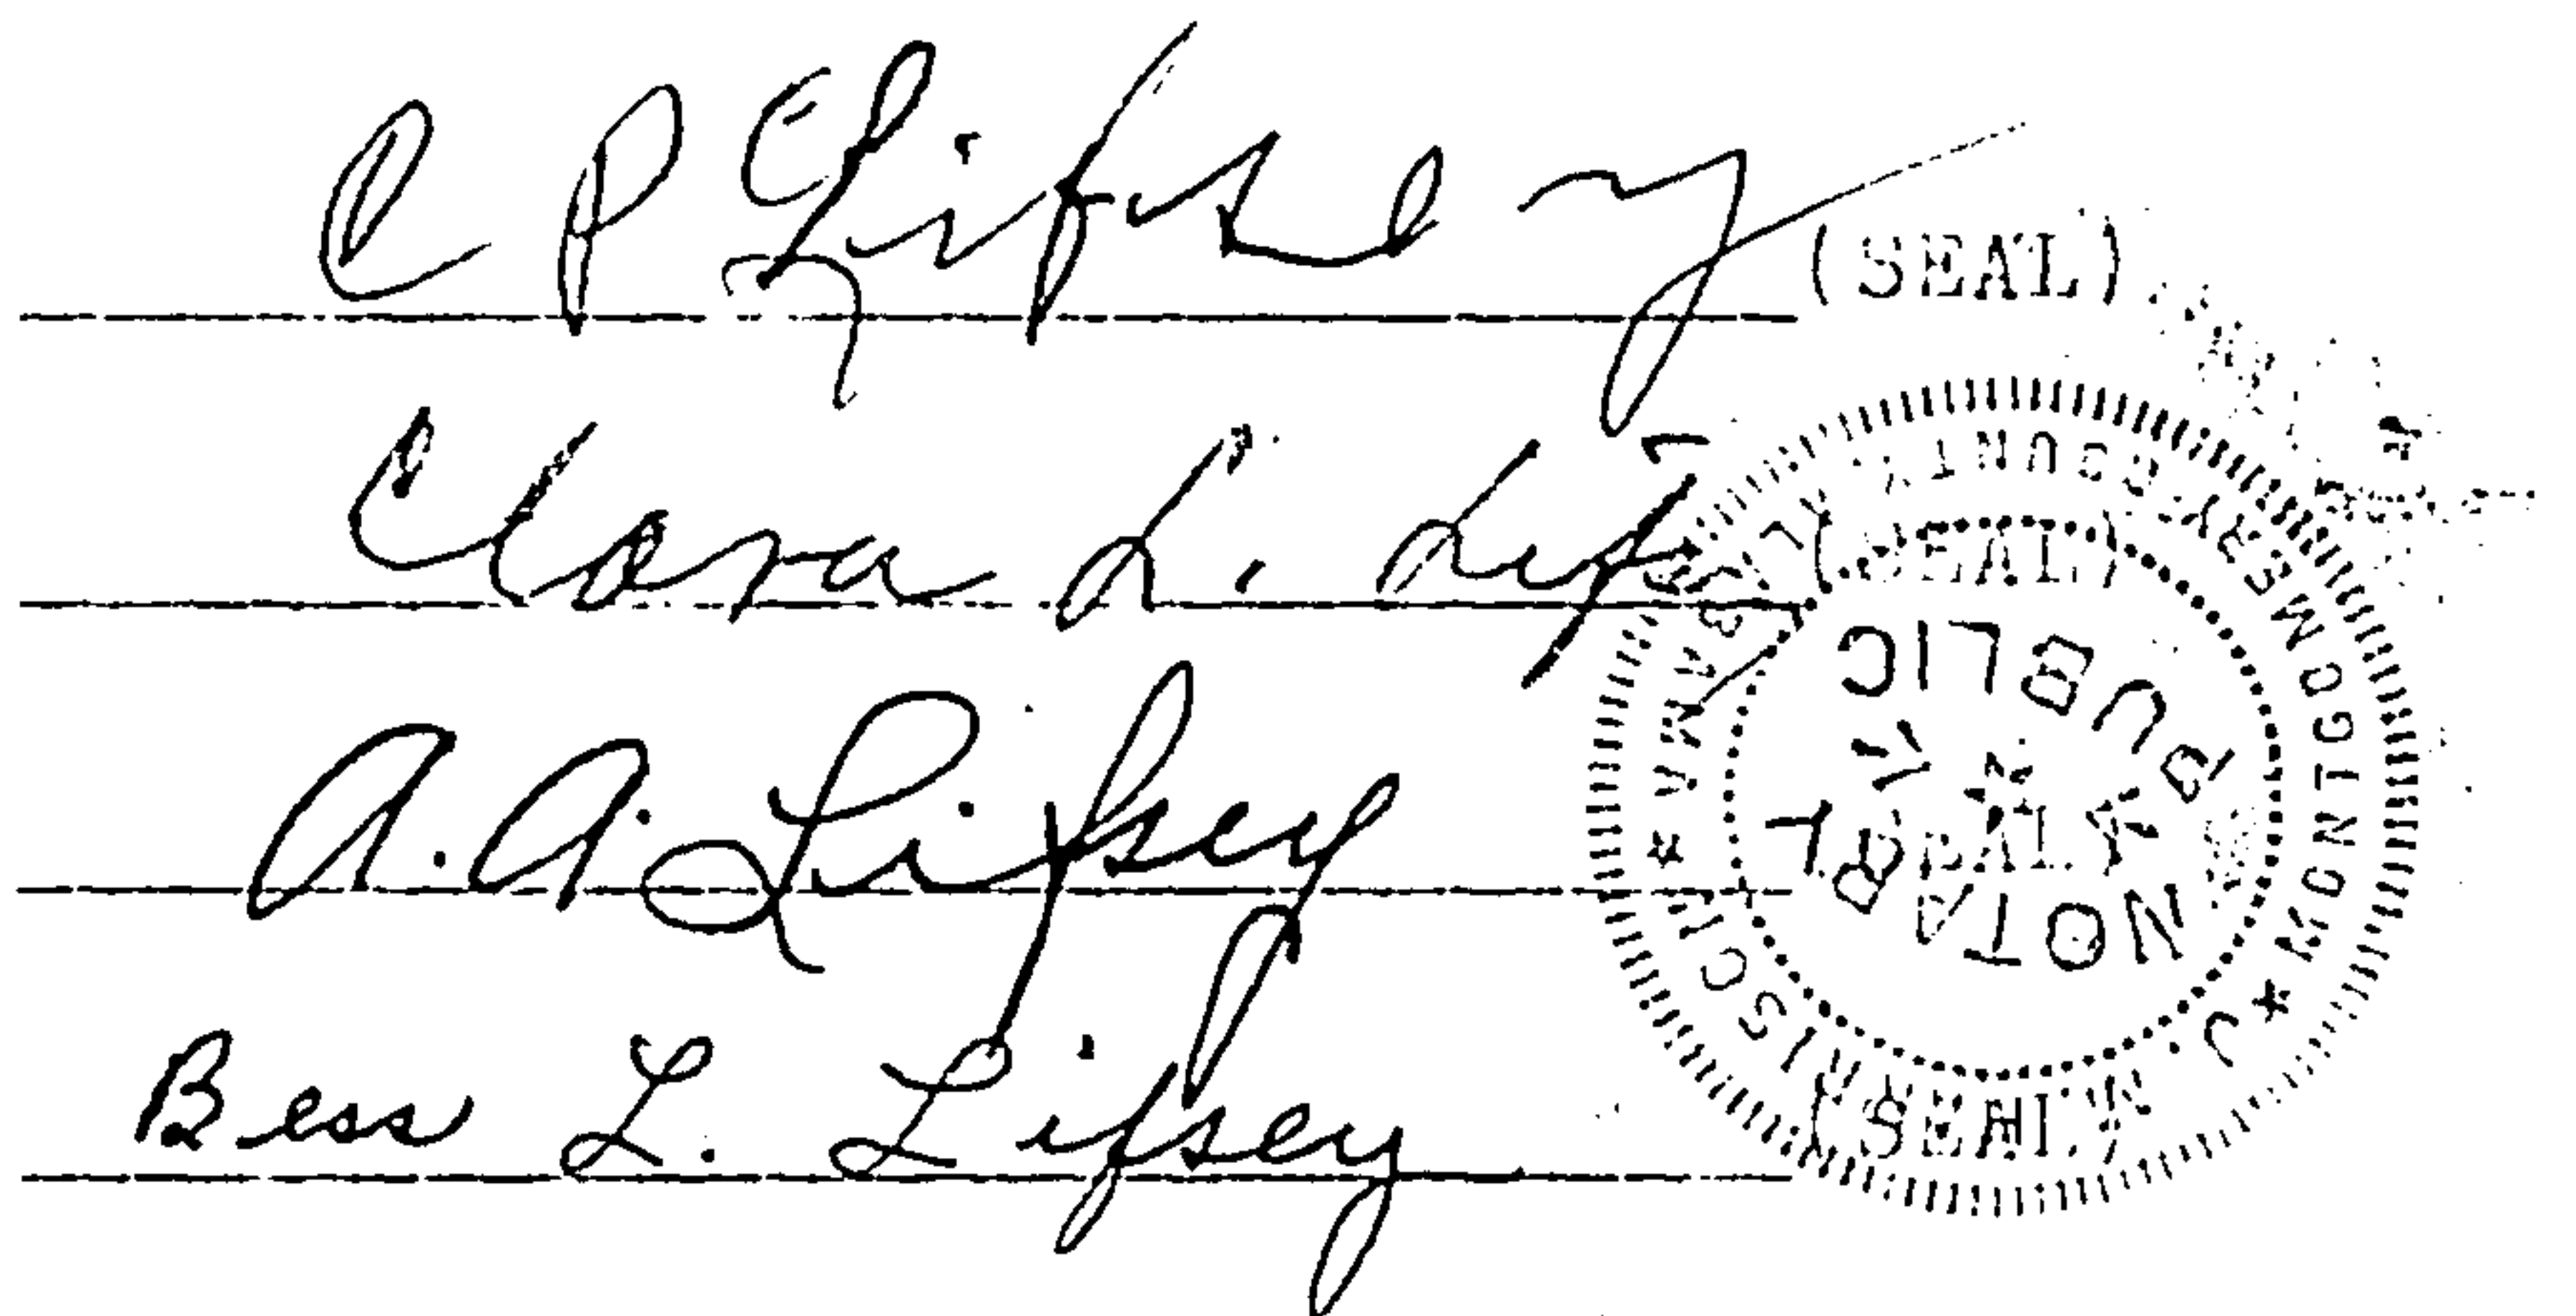 C P Lifsey (SEAL)
Clara L. Lif (SEAL)
A. A. Lifsey (SEAL)
Bess L. Lifsey (SEAL)
NOTARY PUBLIC
* MONTGOMERY COUNTY, ALABAMA *